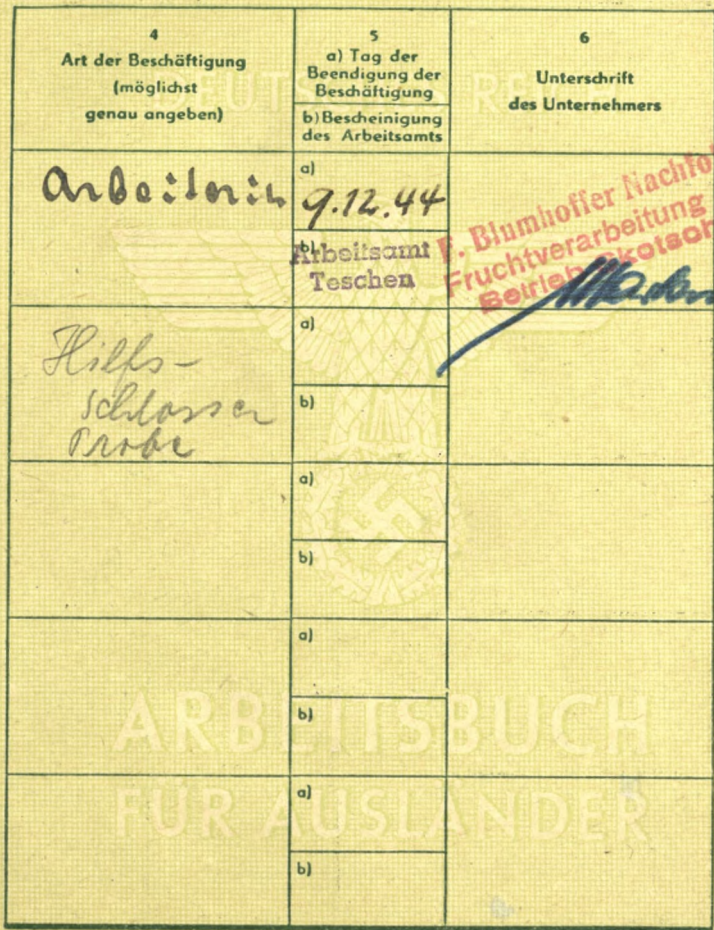 4
Art der Beschäftigung
(möglichst
genau angeben)
5
a) Tag der
Beendigung der
Beschäftigung
b) Bescheinigung
des Arbeitsamts
6
Unterschrift
des Unternehmers
DEUTSCHES REICH
Arbeiterin
a)
9.12.44
b)
Arbeitsamt
Teschen
F. Blumhoffer Nachfol
Fruchtverarbeitung
Betrieb Skotsch
Hilfs-
schlosser
Probe
a)
b)
a)
b)
a)
b)
ARBEITSBUCH
FÜR AUSLÄNDER
a)
b)